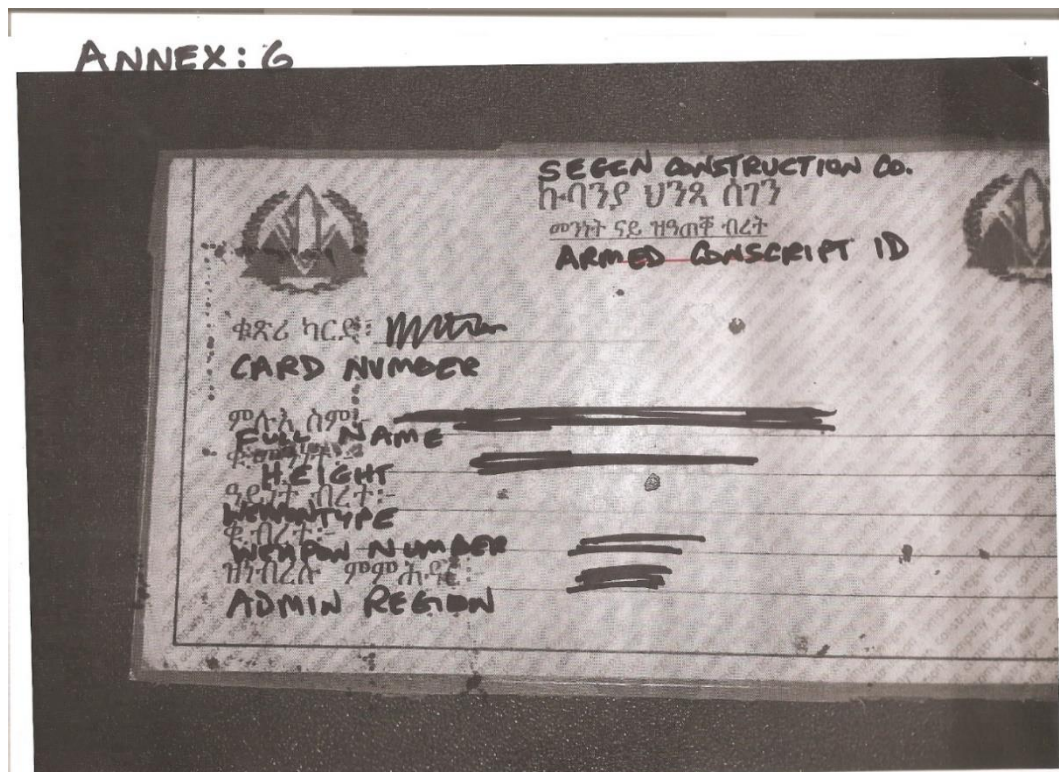 ANNEX: G
SEGEN CONSTRUCTION CO.
ኩባንያ ህንጻ ሰገን
መንነት ናይ ዝዓጠቐ ብረት
ARMED CONSCRIPT ID
ቁጽሪ ካርድ፡
CARD NUMBER
ምሉእ ስም፡-
FULL NAME
HEIGHT
ዓይነት ብረት፡-
WEAPON TYPE
ቁ. ብረት፡-
WEAPON NUMBER
ዝነብረሉ ምምሕዳር፡-
ADMIN REGION